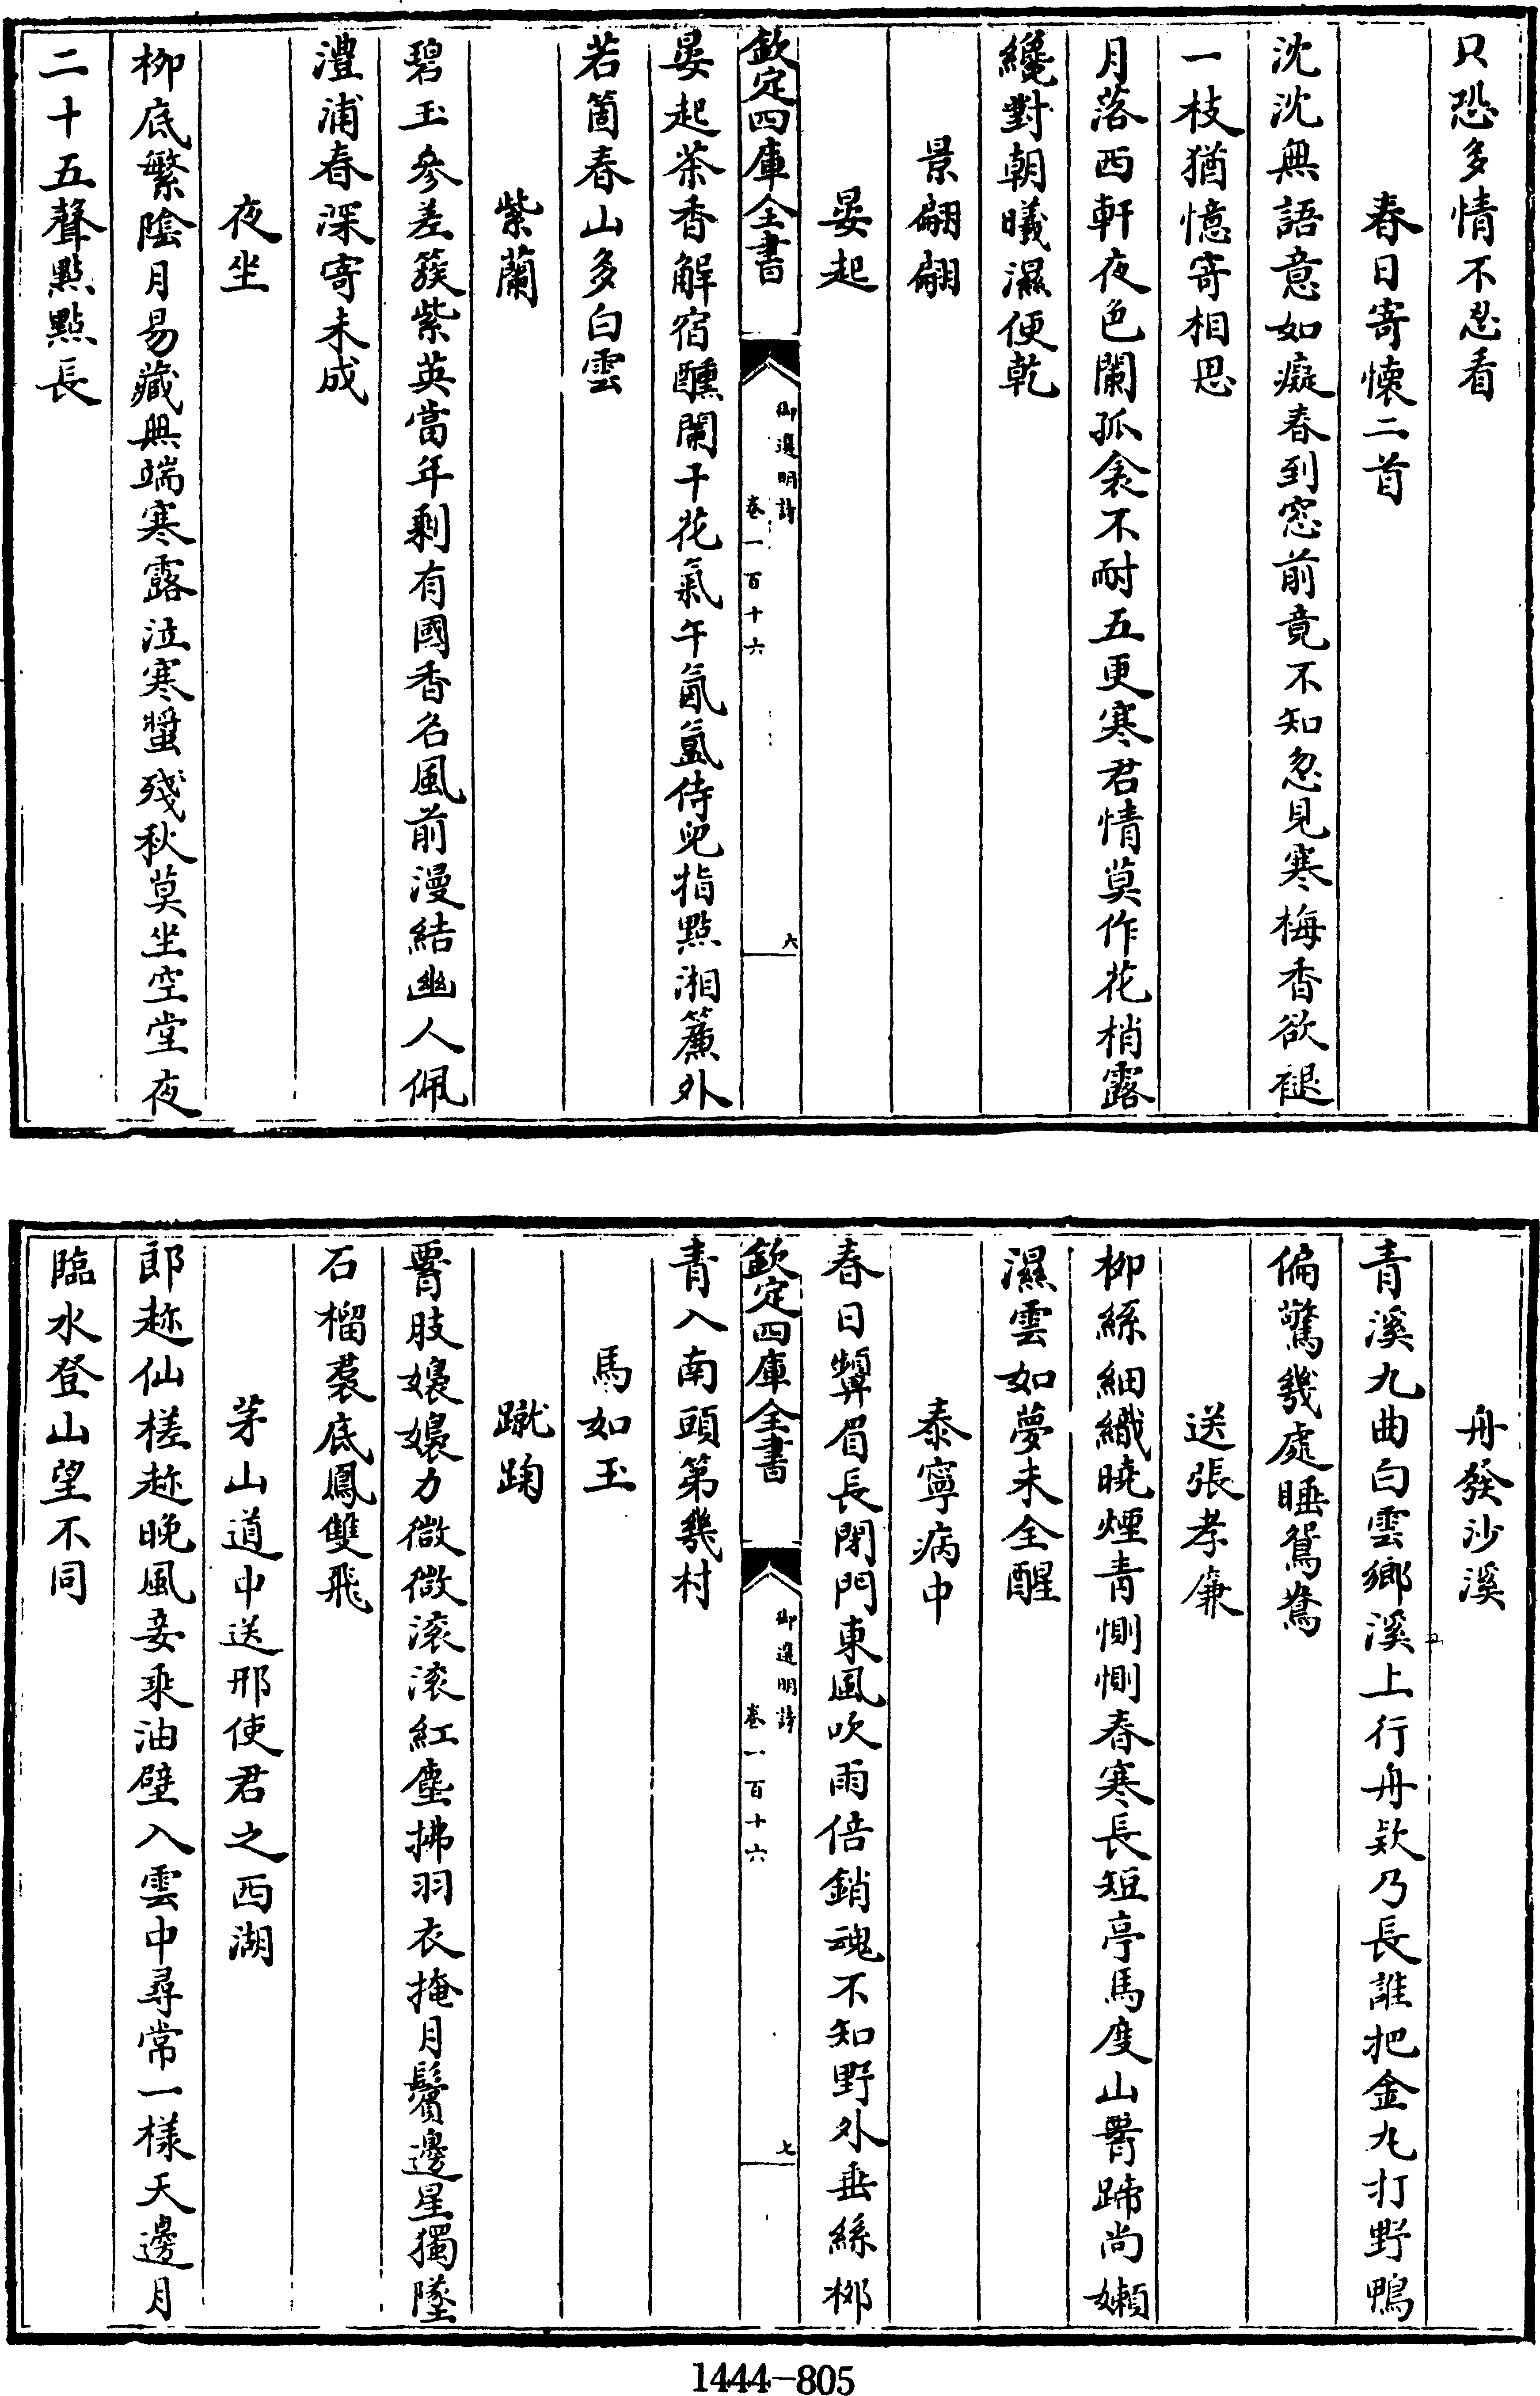 只恐多情不忍看
春日寄懷二首
沈沈無語意如癡春到窓前竟不知忽見寒梅香欲褪
一枝猶憶寄相思
月落西軒夜色闌孤衾不耐五更寒君情莫作花梢露
纔對朝曦濕便乾
景翩翩
晏起
欽定四庫全書
御選明詩
卷一百十六
六
晏起茶香解宿醺闌干花氣午氤氲侍兒指點湘簾外
若箇春山多白雲
紫蘭
碧玉參差簇紫英當年剩有國香名風前漫結幽人佩
澧浦春深寄未成
夜坐
柳底繁陰月易藏無端寒露泣寒螀殘秋莫坐空堂夜
二十五聲點點長
舟發沙溪
青溪九曲白雲鄉溪上行舟欵乃長誰把金丸打野鴨
偏驚幾處睡鴛鴦
送張孝廉
柳絲細織曉煙青惻惻春寒長短亭馬度山腰蹄尚嬾
濕雲如夢未全醒
泰寧病中
春日顰眉長閉門東風吹雨倍銷魂不知野外垂絲柳
欽定四庫全書
御選明詩
卷一百十六
七
青入南頭第幾村
馬如玉
蹴踘
腰肢嬝嬝力微微滚滚紅塵拂羽衣掩月鬢邊星獨墜
石榴裙底鳳雙飛
茅山道中送邢使君之西湖
郎趂仙槎趂晚風妾乘油壁入雲中尋常一樣天邊月
臨水登山望不同
1444-805